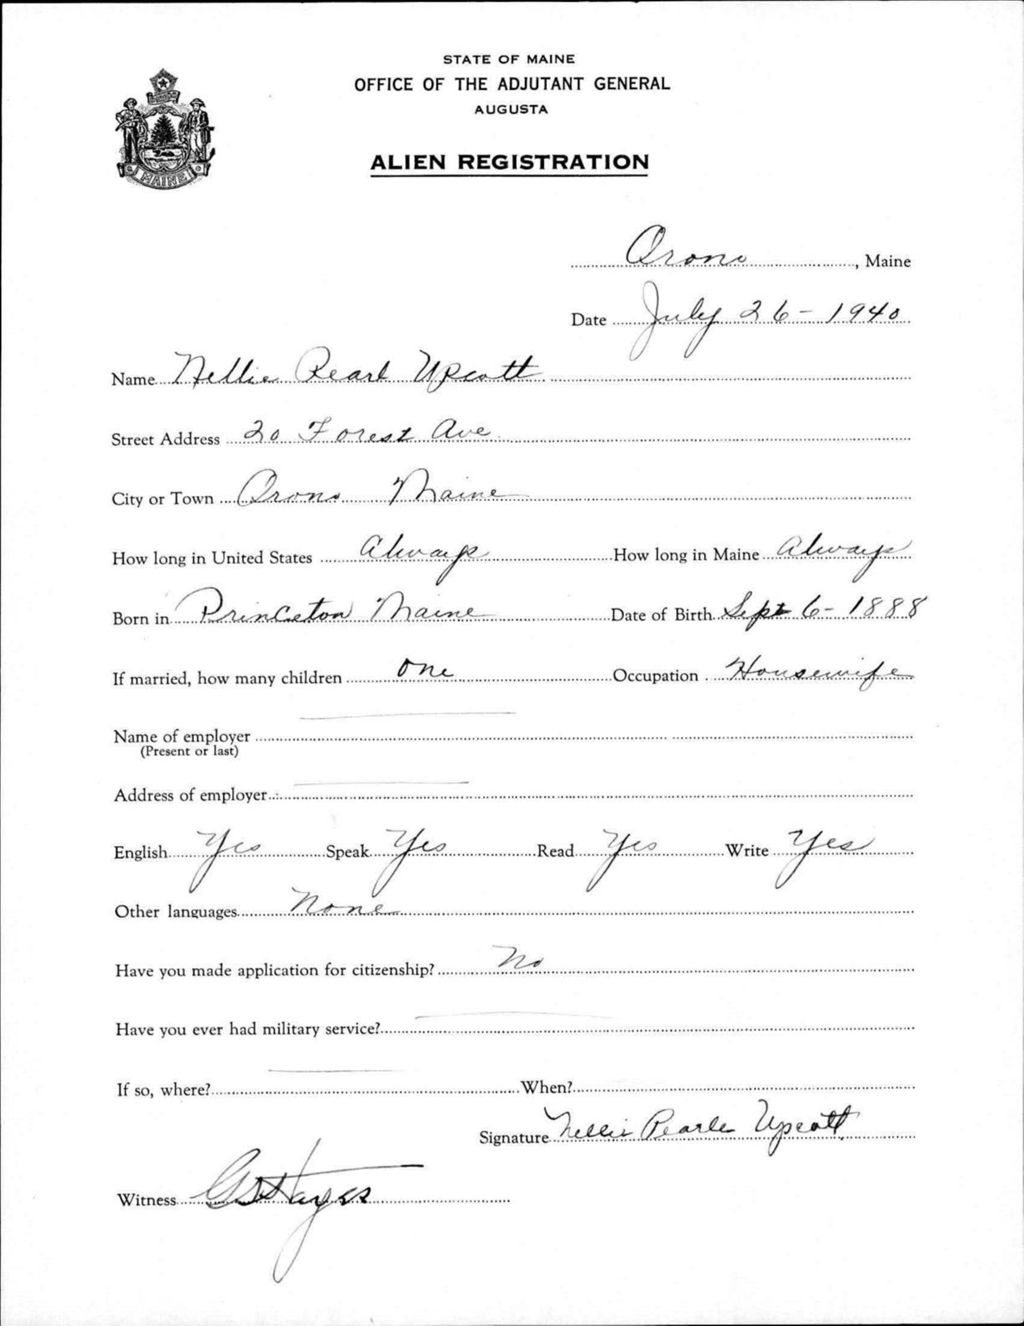 STATE OF MAINE
OFFICE OF THE ADJUTANT GENERAL
AUGUSTA
MAINE
ALIEN REGISTRATION
Orono, Maine
Date July 26 - 1940
Name Nellie Pearl Upcott
Street Address 20 Forest Ave.
City or Town Orono Maine
How long in United States Always How long in Maine Always
Born in Princeton Maine Date of Birth Sept 6 - 1888
If married, how many children one Occupation Housewife
Name of employer
(Present or last)
Address of employer
English Yes Speak Yes Read Yes Write Yes
Other languages None
Have you made application for citizenship? No
Have you ever had military service?
If so, where? When?
Signature Nellie Pearle Upcott
Witness G S Hayes